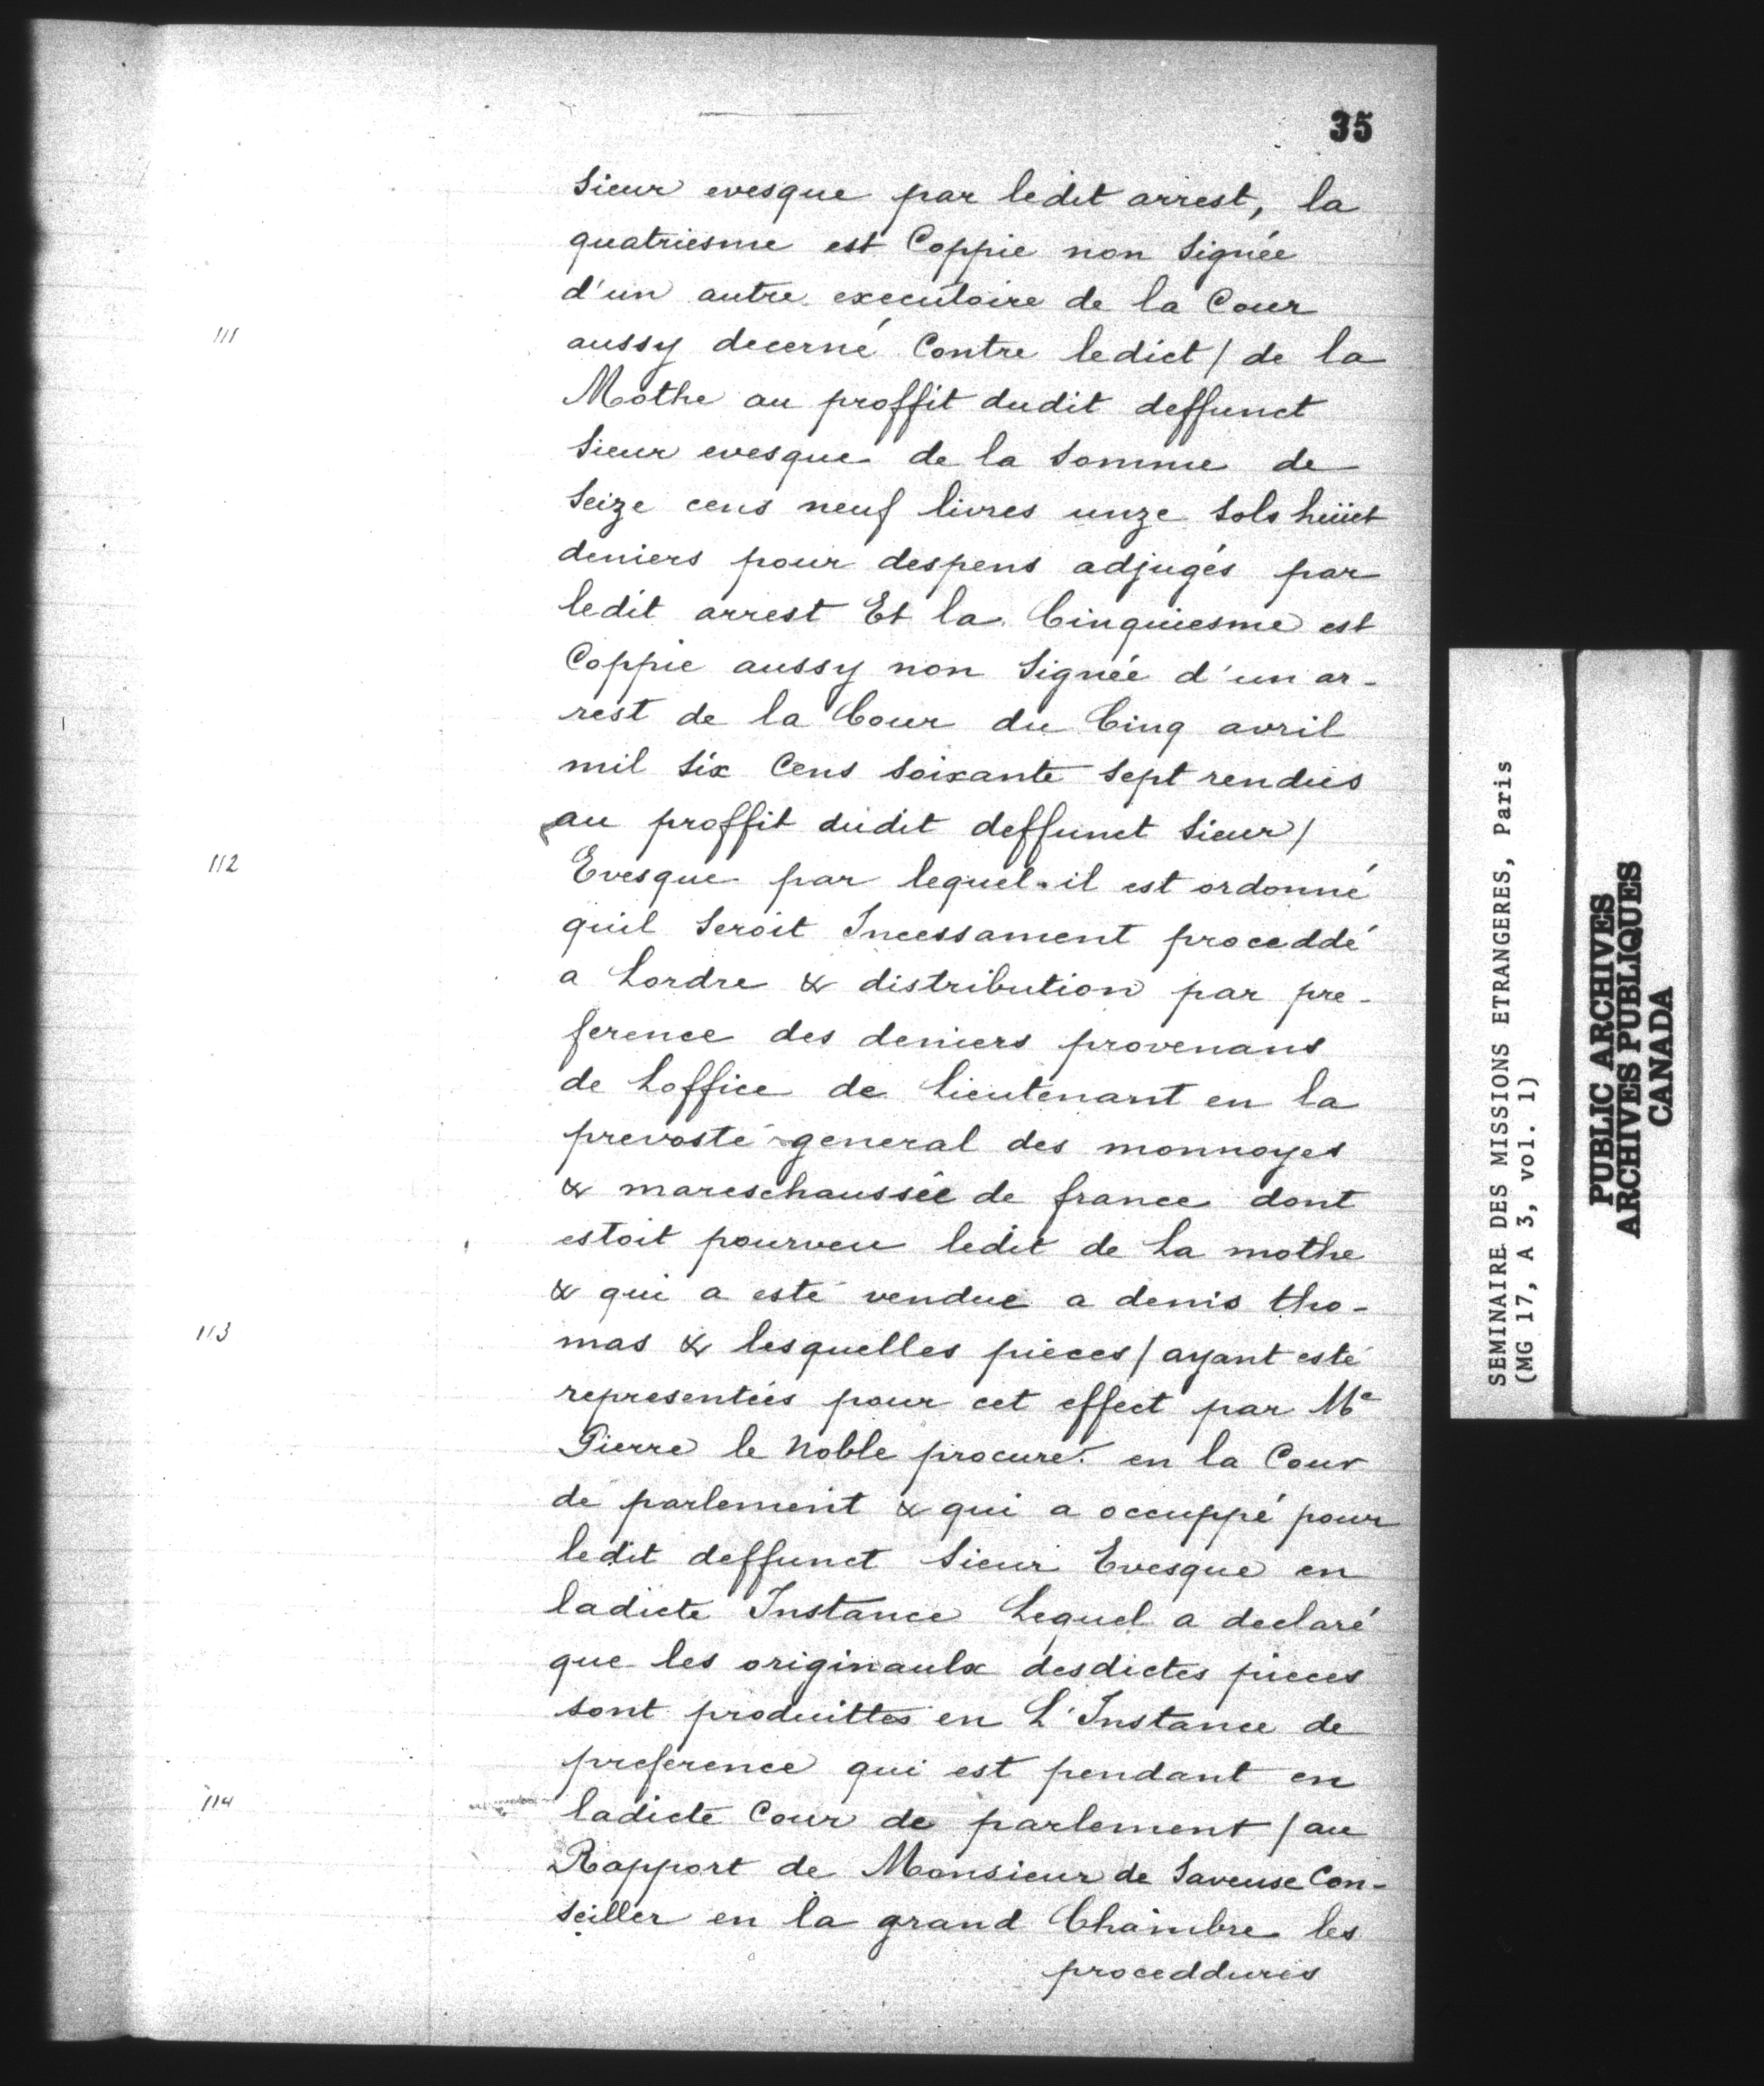 35
Sieur evesque par ledit arrest, la
quatriesme est Coppie non Signée
d'un autre executoire de la Cour
111
aussy decerné Contre ledict / de la
Mothe au proffit dudit deffunct
Sieur evesque de la Somme de
Seize cens neuf livres unze Sols hüict
deniers pour despens adjugés par
ledit arrest Et la Cinquiesme est
Coppie aussy non Signée d'un ar-
rest de la Cour du Cinq avril
mil Six Cens Soixante Sept rendus
au proffit dudit deffunct Sieur /
112
Evesque par lequel il est ordonné
quil Seroit Incessament proceddé
a Lordre & distribution par pre-
ference des deniers provenans
de Loffice de Lieutenant en la
prevosté general des monnoyes
& mareschaussée de france dont
estoit pourveu ledit de La mothe
& qui a esté vendue a denis tho-
113
mas & lesquelles pièces / ayant esté
representées pour cet effect par Me
Pierre le Noble procurer en la Cour
de parlement & qui a occuppé pour
ledit deffunct Sieur Evesque en
ladicte Instance Lequel a declaré
que les originaulx desdictes pieces
sont produittes en L'Instance de
preference qui est pendant en
114
ladicte Cour de parlement / au
Rapport de Monsieur de Saveuse Con-
seiller en la grand Chambre les
proceddures
SEMINAIRE DES MISSIONS ETRANGERES, Paris
(MG 17, A 3, vol. 1)
PUBLIC ARCHIVES
ARCHIVES PUBLIQUES
CANADA